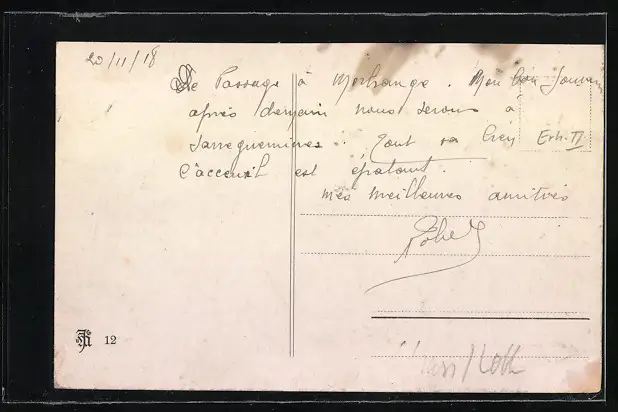 20/11/18
De Passage à Morhange. Mon bon Souvenir
après demain nous serons à
Sarreguemines. Tout va bien
Erh. II
L'accueil est épatant.
mes meilleures amitiés
Robert
12